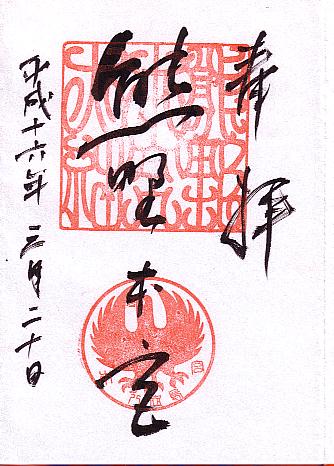 奉拝
熊野
本宮
平成十六年三月二十日